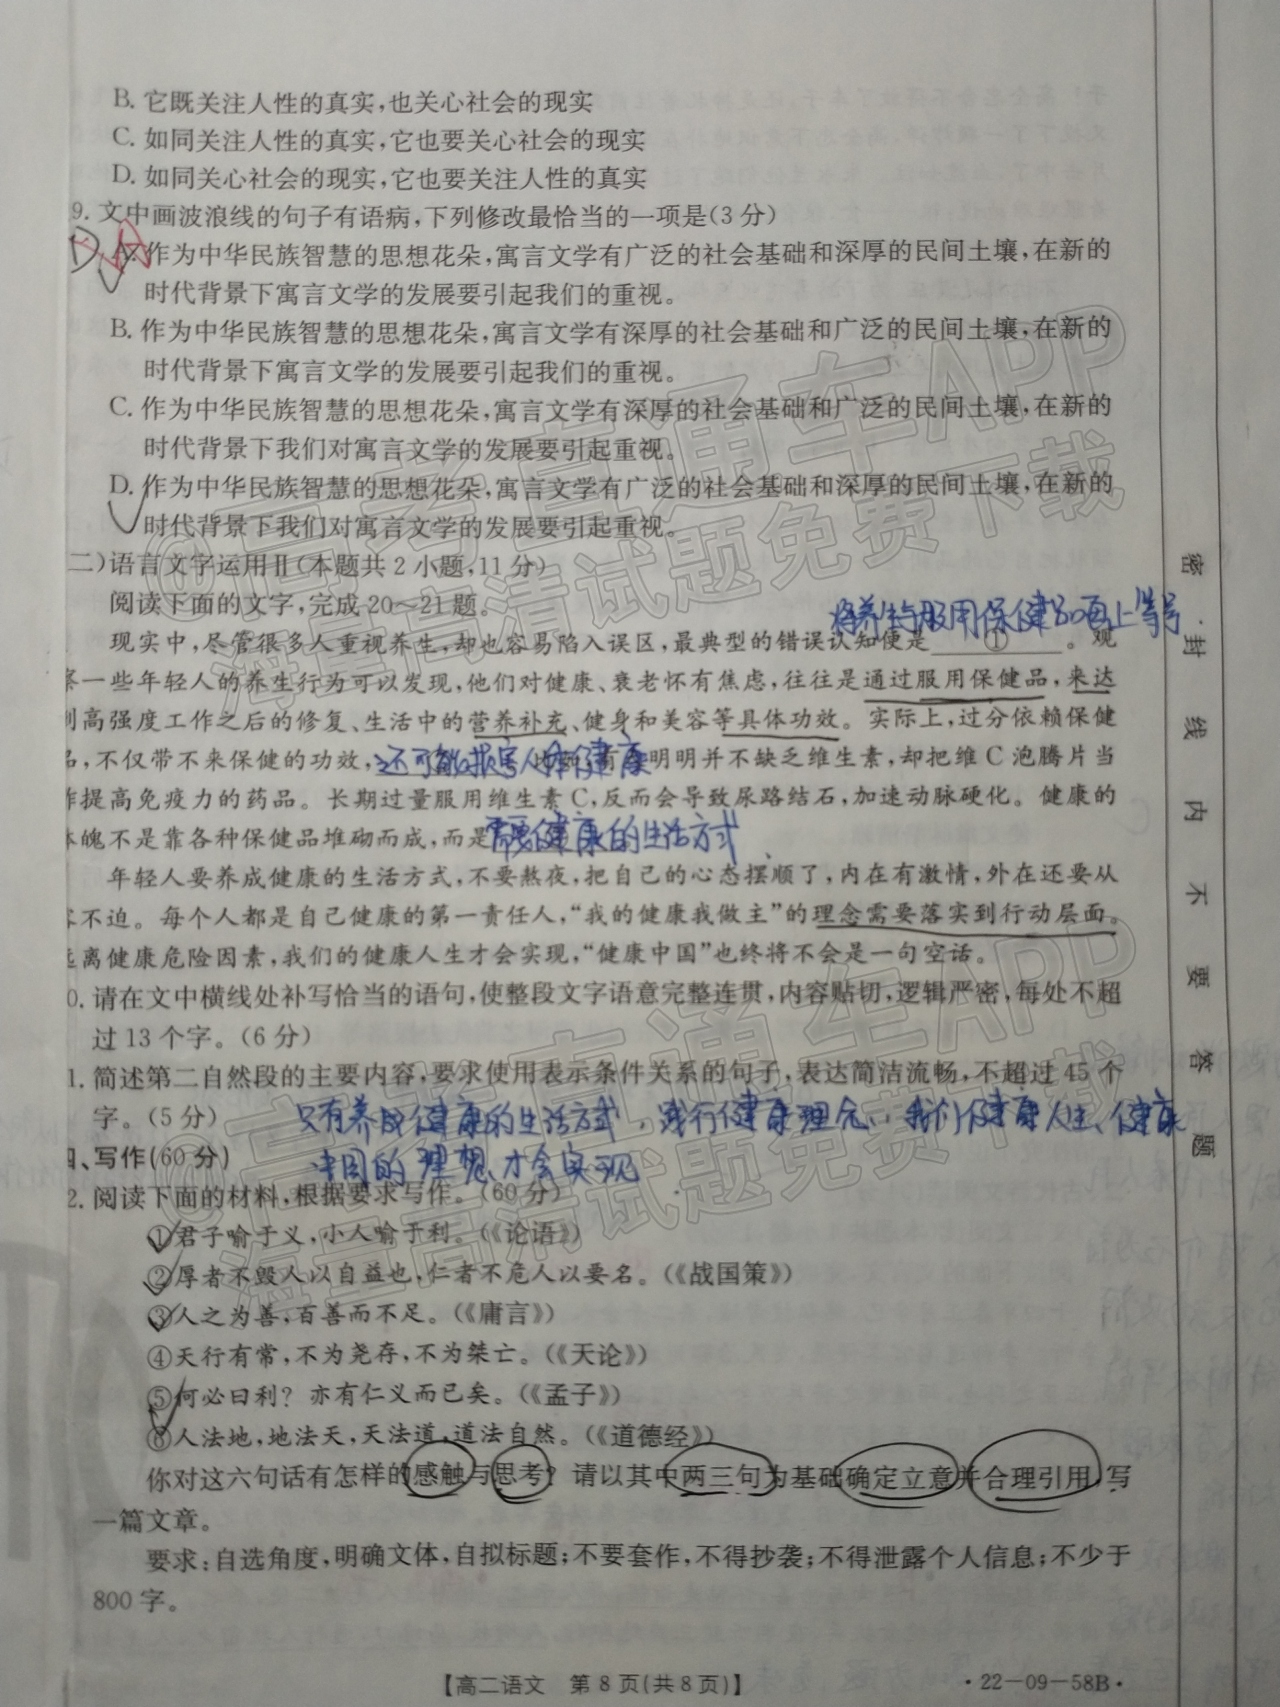 B. 它既关注人性的真实,也关心社会的现实
C. 如同关注人性的真实,它也要关心社会的现实
D. 如同关心社会的现实,它也要关注人性的真实
9. 文中画波浪线的句子有语病,下列修改最恰当的一项是(3分)
A. 作为中华民族智慧的思想花朵,寓言文学有广泛的社会基础和深厚的民间土壤,在新的
时代背景下寓言文学的发展要引起我们的重视。
B. 作为中华民族智慧的思想花朵,寓言文学有深厚的社会基础和广泛的民间土壤,在新的
时代背景下寓言文学的发展要引起我们的重视。
C. 作为中华民族智慧的思想花朵,寓言文学有深厚的社会基础和广泛的民间土壤,在新的
时代背景下我们对寓言文学的发展要引起重视。
D. 作为中华民族智慧的思想花朵,寓言文学有广泛的社会基础和深厚的民间土壤,在新的
时代背景下我们对寓言文学的发展要引起重视。
二)语言文字运用Ⅱ(本题共2小题,11分)
阅读下面的文字,完成20~21题。
将养生与服用保健品画上等号
现实中,尽管很多人重视养生,却也容易陷入误区,最典型的错误认知便是 ① 。观
察一些年轻人的养生行为可以发现,他们对健康、衰老怀有焦虑,往往是通过服用保健品,来达
到高强度工作之后的修复、生活中的营养补充、健身和美容等具体功效。实际上,过分依赖保健
品,不仅带不来保健的功效,还可能损害人体健康 明明并不缺乏维生素,却把维C泡腾片当
作提高免疫力的药品。长期过量服用维生素C,反而会导致尿路结石,加速动脉硬化。健康的
体魄不是靠各种保健品堆砌而成,而是需要健康的生活方式
年轻人要养成健康的生活方式,不要熬夜,把自己的心态摆顺了,内在有激情,外在还要从
容不迫。每个人都是自己健康的第一责任人,“我的健康我做主”的理念需要落实到行动层面。
远离健康危险因素,我们的健康人生才会实现,“健康中国”也终将不会是一句空话。
0. 请在文中横线处补写恰当的语句,使整段文字语意完整连贯,内容贴切,逻辑严密,每处不超
过13个字。(6分)
1. 简述第二自然段的主要内容,要求使用表示条件关系的句子,表达简洁流畅,不超过45个
字。(5分)
只有养成健康的生活方式,践行健康理念,我们健康人生、健康
中国的理想才会实现
四、写作(60分)
2. 阅读下面的材料,根据要求写作。(60分)
①君子喻于义,小人喻于利。(《论语》)
②厚者不毁人以自益也,仁者不危人以要名。(《战国策》)
③人之为善,百善而不足。(《庸言》)
④天行有常,不为尧存,不为桀亡。(《天论》)
⑤何必曰利?亦有仁义而已矣。(《孟子》)
⑥人法地,地法天,天法道,道法自然。(《道德经》)
你对这六句话有怎样的感触与思考?请以其中两三句为基础确定立意并合理引用,写
一篇文章。
要求:自选角度,明确文体,自拟标题;不要套作,不得抄袭;不得泄露个人信息;不少于
800字。
【高二语文 第8页(共8页)】
·22-09-58B·
密封线内不要答题
@高考直通车APP
海量高清试题免费下载
@高考直通车APP
海量高清试题免费下载